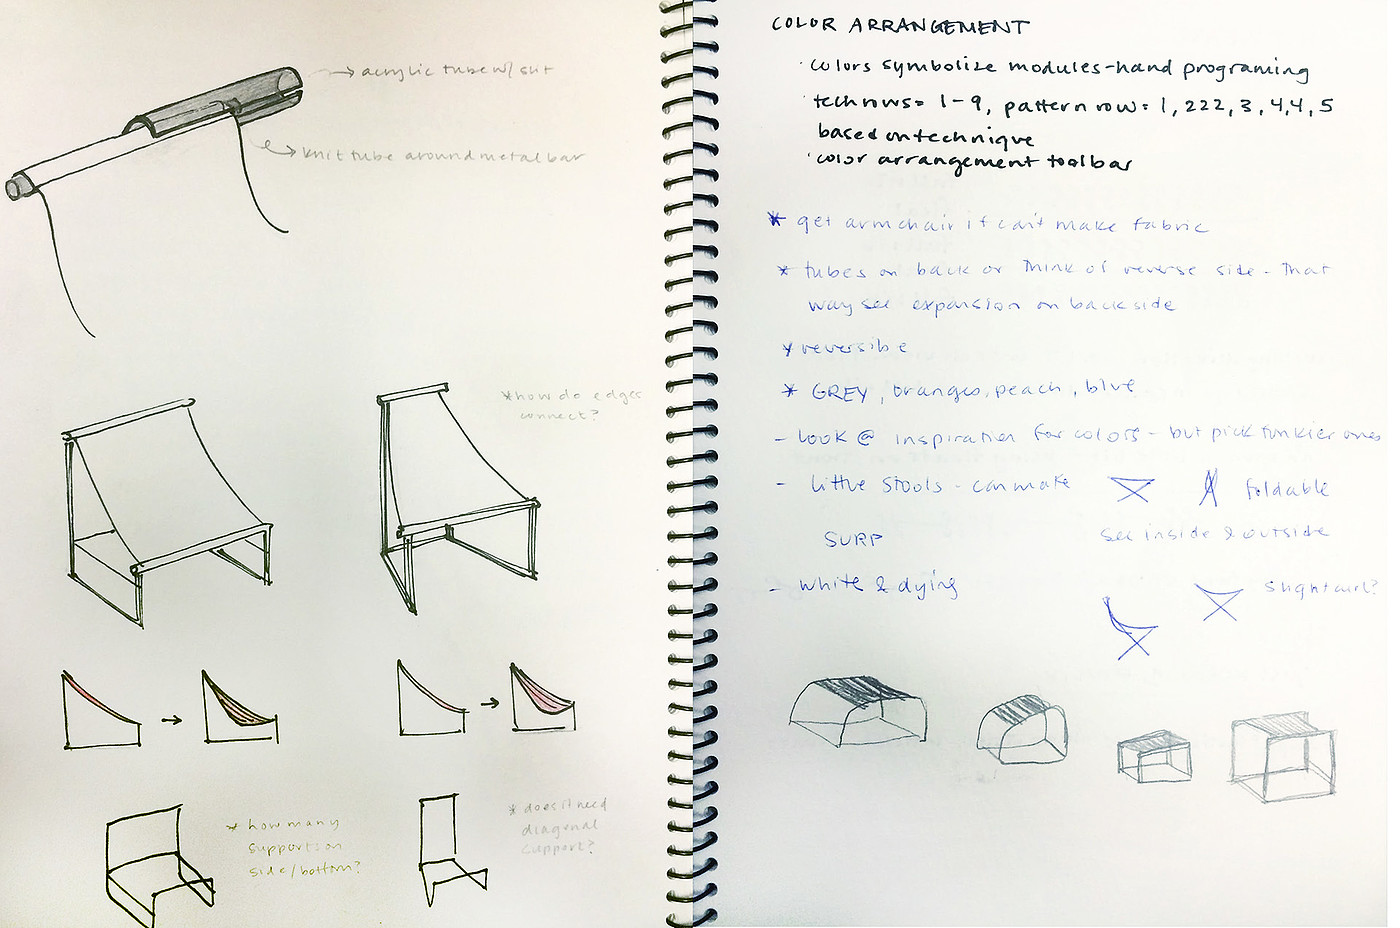 → acrylic tube w/ slit
→ knit tube around metal bar
*how do edges
connect?
* how many
supports on
side/bottom?
* does it need
diagonal
support?
COLOR ARRANGEMENT
· colors symbolize modules-hand programing
· tech rows= 1-9, pattern row= 1, 222, 3, 4,4, 5
based on technique
· color arrangement toolbar
* get armchair if can't make fabric
* tubes on back or think of reverse side - that
way see expansion on backside
* reversible
* GREY, oranges, peach, blue
- Look @ inspiration for colors - but pick funkier ones
- little stools - can make
foldable
SURP
see inside & outside
- white & dying
slight curl?